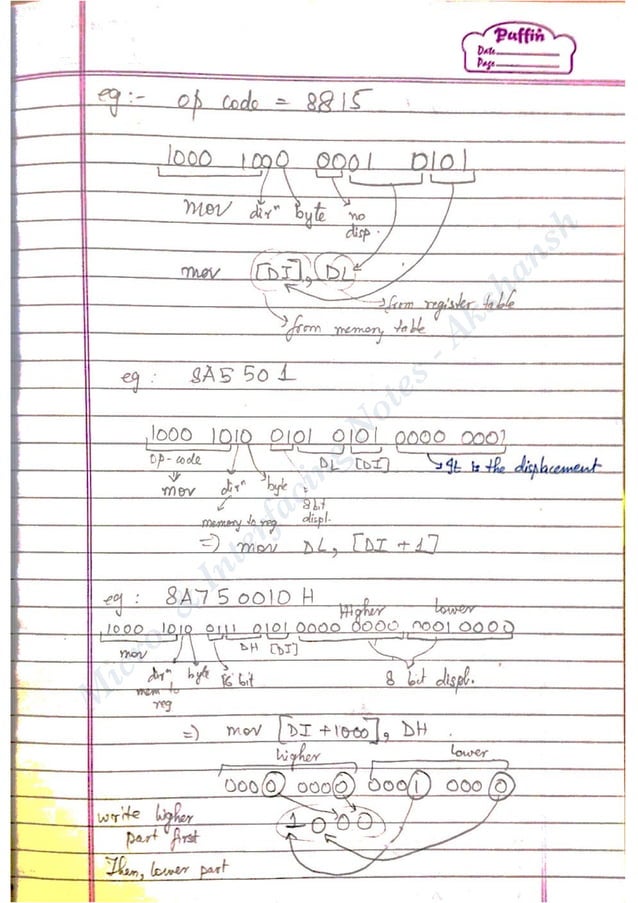 Puffin
Date
Page
eg:- op code = 8815
1000 1000 0001 0101
mov dirⁿ byte no
disp.
mov [DI], DL
from register table
from memory table
eg : 8A5501
1000 1010 0101 0101 0000 0001
op-code DL [DI] It is the displacement
mov dirⁿ byte 8 bit
memory to reg displ.
=) mov DL, [DI + 1]
eg : 8A750010H
Higher lower
1000 1010 0111 0101 0000 0000 0001 0000
mov DH [DI]
dirⁿ byte 16 bit 8 bit displ.
mem to
reg
=) mov [DI + 1000], DH
higher lower
0000 0000 0001 0000
write higher 1000
part first
Then, lower part
Micro. & Interfacing Notes - Akshansh